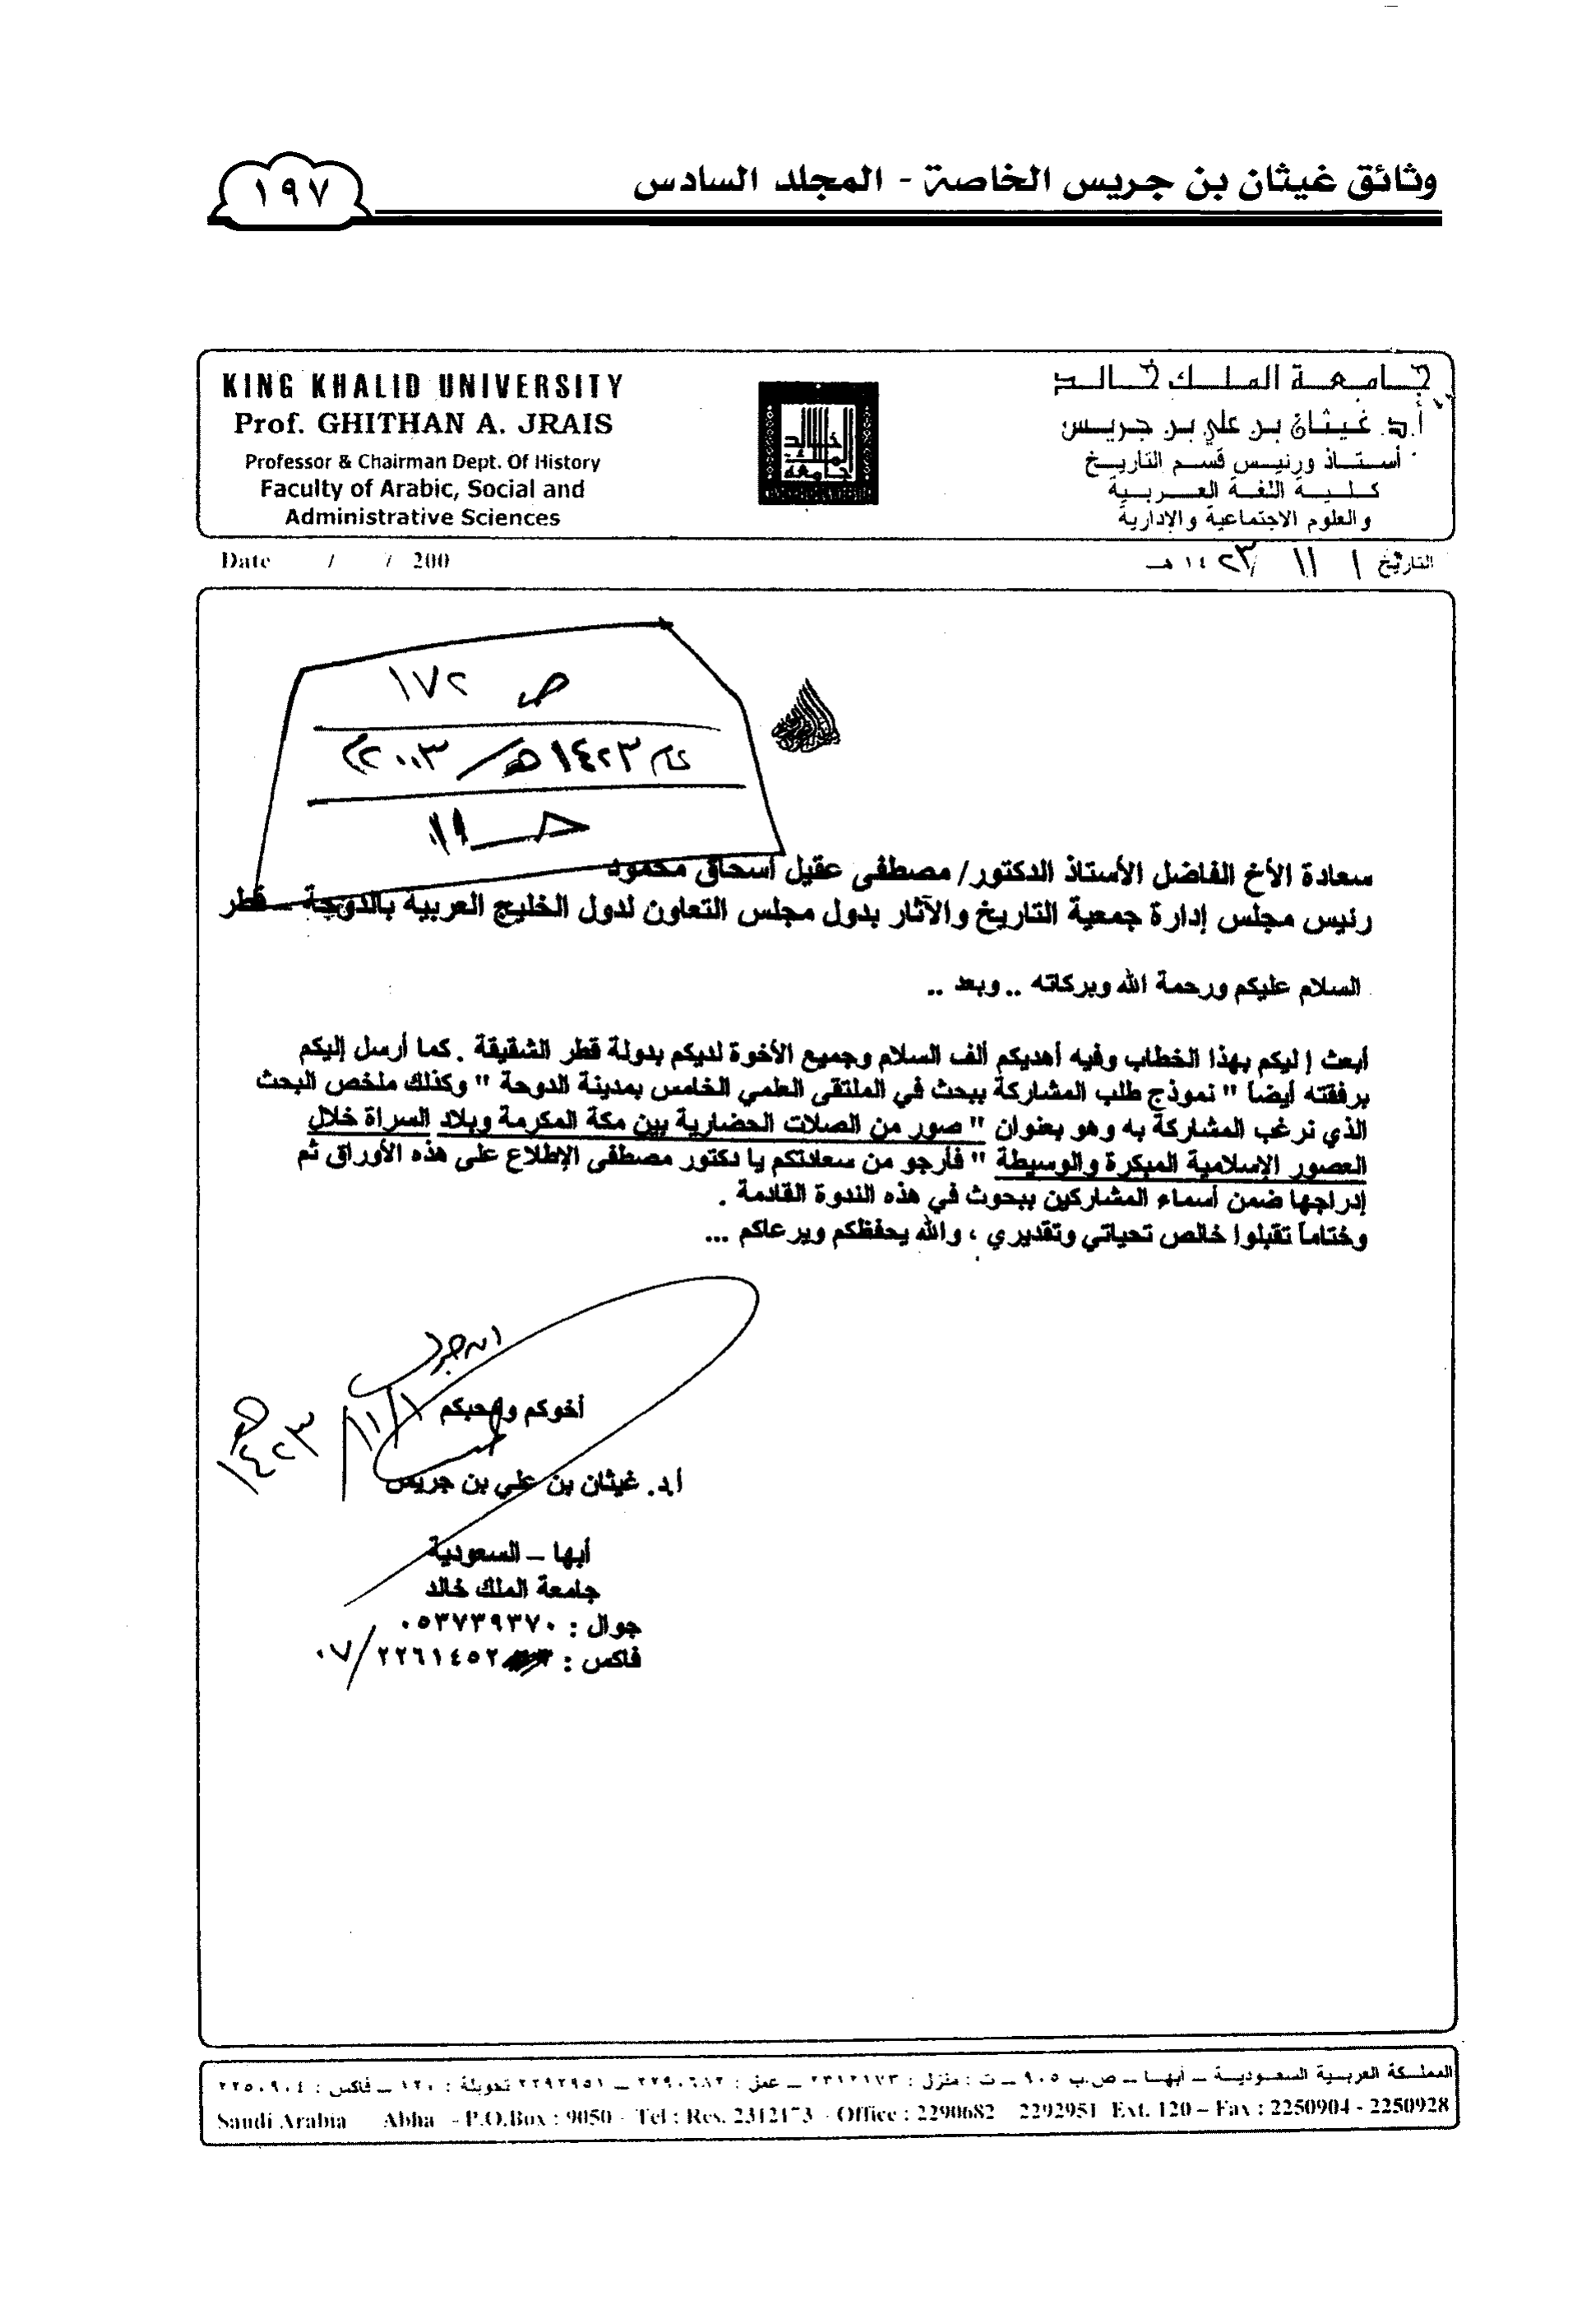 وثائق غيثان بن جريس الخاصة - المجلد السادس
١٩٧
جامعة الملك خالد
أ.د. غيثان بن علي بن جريس
أستاذ ورئيس قسم التاريخ
كلية اللغة العربية
والعلوم الاجتماعية والإدارية
KING KHALID UNIVERSITY
Prof. GHITHAN A. JRAIS
Professor & Chairman Dept. Of History
Faculty of Arabic, Social and
Administrative Sciences
جامعة الملك خالد
التاريخ ١ / ١١ / ١٤٢٣هـ
Date / / 200
ص ١٧٢
١٤٢٣هـ / ٢٠٠٣م
سعادة الأخ الفاضل الأستاذ الدكتور/ مصطفى عقيل اسحاق محمود
رئيس مجلس إدارة جمعية التاريخ والآثار بدول مجلس التعاون لدول الخليج العربية بالدوحة – قطر
السلام عليكم ورحمة الله وبركاته .. وبعد ..
أبعث إليكم بهذا الخطاب وفيه أهديكم ألف السلام وجميع الأخوة لديكم بدولة قطر الشقيقة . كما أرسل إليكم
برفقته أيضاً " نموذج طلب المشاركة ببحث في الملتقى العلمي الخامس بمدينة الدوحة " وكذلك ملخص البحث
الذي نرغب المشاركة به وهو بعنوان " صور من الصلات الحضارية بين مكة المكرمة وبلاد السراة خلال
العصور الإسلامية المبكرة والوسيطة " فأرجو من سعادتكم يا دكتور مصطفى الإطلاع على هذه الأوراق ثم
إدراجها ضمن أسماء المشاركين ببحوث في هذه الندوة القادمة .
وختاماً تقبلوا خالص تحياتي وتقديري ، والله يحفظكم ويرعاكم ...
أخوكم ومحبكم
١/١١/١٤٢٣هـ
أ.د. غيثان بن علي بن جريس
أبها – السعودية
جامعة الملك خالد
جوال : ٠٥٣٧٣٩٣٧٠
فاكس : ٢٢٦١٤٥٢/٠٧
المملكة العربية السعودية – أبها – ص.ب ٩٠٥ – ت : منزل : ٢٣١٢١٧٣ – عمل : ٢٢٩٠٦٨٢ – ٢٢٩٢٩٥١ تحويلة : ١٢٠ – فاكس : ٢٢٥٠٩٠٤
Saudi Arabia Abha - P.O.Box : 9050 - Tel : Res. 2312173 - Office : 2290682 2292951 Ext. 120 – Fax : 2250904 - 2250928